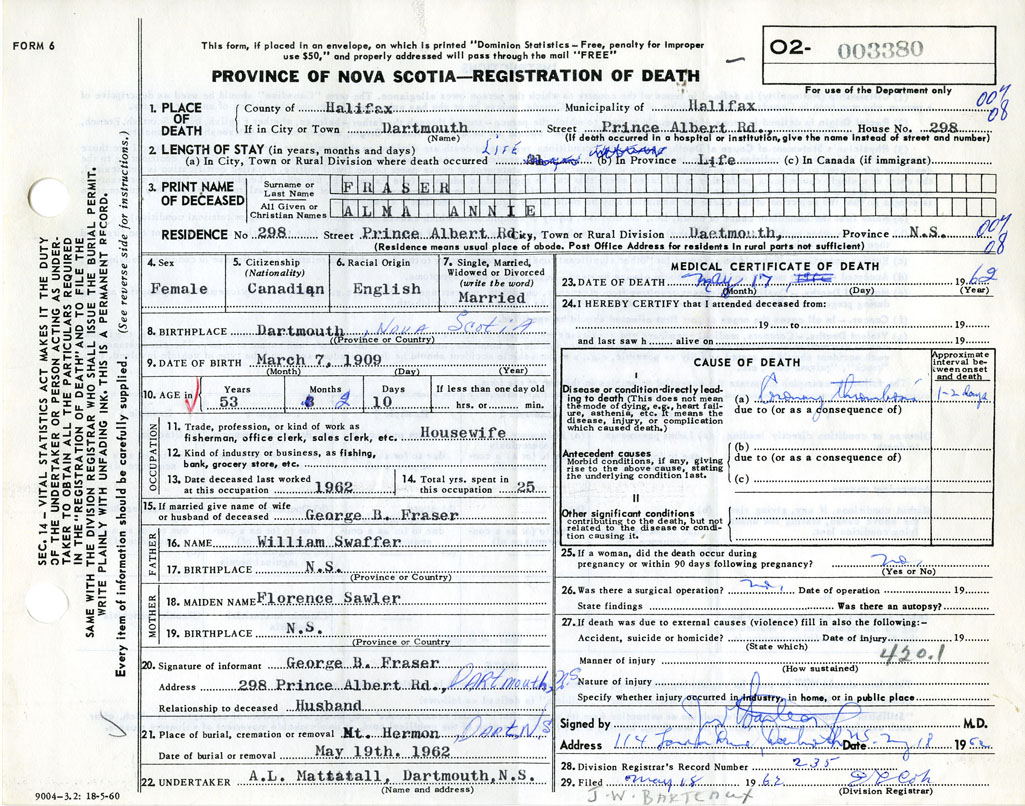 FORM 6
This form, if placed in an envelope, on which is printed "Dominion Statistics – Free, penalty for Improper
use $50," and properly addressed will pass through the mail "FREE"
PROVINCE OF NOVA SCOTIA—REGISTRATION OF DEATH
O2- 003380
For use of the Department only
1. PLACE OF DEATH
County of Halifax Municipality of Halifax 007
If in City or Town Dartmouth Street Prince Albert Rd., House No. 298 08
(Name) (If death occurred in a hospital or institution, give the name instead of street and number)
2. LENGTH OF STAY (in years, months and days) LIFE
(a) In City, Town or Rural Division where death occurred (b) In Province Life (c) In Canada (if immigrant)
3. PRINT NAME OF DECEASED
Surname or Last Name FRASER
All Given or Christian Names ALMA ANNIE
RESIDENCE No 298 Street Prince Albert Rd. City, Town or Rural Division Daetmouth, Province N.S. 007
(Residence means usual place of abode. Post Office Address for residents in rural parts not sufficient) 08
4. Sex Female
5. Citizenship (Nationality) Canadian
6. Racial Origin English
7. Single, Married, Widowed or Divorced (write the word) Married
8. BIRTHPLACE Dartmouth, NOVA SCOTIA
(Province or Country)
9. DATE OF BIRTH March 7, 1909
(Month) (Day) (Year)
10. AGE in Years 53 Months 2 Days 10 If less than one day old hrs. or min.
OCCUPATION
11. Trade, profession, or kind of work as fisherman, office clerk, sales clerk, etc. Housewife
12. Kind of industry or business, as fishing, bank, grocery store, etc.
13. Date deceased last worked at this occupation 1962
14. Total yrs. spent in this occupation 25
15. If married give name of wife or husband of deceased George B. Fraser
FATHER
16. NAME William Swaffer
17. BIRTHPLACE N.S.
(Province or Country)
MOTHER
18. MAIDEN NAME Florence Sawler
19. BIRTHPLACE N.S.
(Province or Country
20. Signature of informant George B. Fraser
Address 298 Prince Albert Rd., DARTMOUTH, N.S
Relationship to deceased Husband
21. Place of burial, cremation or removal Mt. Hermon, DART. N.S
Date of burial or removal May 19th. 1962
22. UNDERTAKER A.L. Mattatall, Dartmouth, N.S.
(Name and address)
9004-3.2: 18-5-60
MEDICAL CERTIFICATE OF DEATH
23. DATE OF DEATH May 17, 1962
(Month) (Day) (Year)
24. I HEREBY CERTIFY that I attended deceased from:
19 to 19
and last saw h alive on 19
CAUSE OF DEATH
Approximate interval between onset and death
I
Disease or condition directly leading to death (This does not mean the mode of dying, e.g., heart failure, asthenia, etc. It means the disease, injury, or complication which caused death.)
(a) Coronary thrombosis 1-2 days
due to (or as a consequence of)
Antecedent causes
Morbid conditions, if any, giving rise to the above cause, stating the underlying condition last.
(b)
due to (or as a consequence of)
(c)
II
Other significant conditions
contributing to the death, but not related to the disease or condition causing it.
25. If a woman, did the death occur during pregnancy or within 90 days following pregnancy? no
(Yes or No)
26. Was there a surgical operation? no, Date of operation 19
State findings Was there an autopsy?
27. If death was due to external causes (violence) fill in also the following:-
Accident, suicide or homicide? Date of injury 19
(State which)
Manner of injury 420.1
(How sustained)
Nature of injury
Specify whether injury occurred in industry, in home, or in public place
Signed by M.D.
Address 114 Date 18 1962
28. Division Registrar's Record Number 235
29. Filed May 18 1962
(Division Registrar)
J.W. BARTEAUX
SEC. 14 – VITAL STATISTICS ACT MAKES IT THE DUTY
OF THE UNDERTAKER OR PERSON ACTING AS UNDER-
TAKER TO OBTAIN ALL THE PARTICULARS REQUIRED
IN THE "REGISTRATION OF DEATH" AND TO FILE THE
SAME WITH THE DIVISION REGISTRAR WHO SHALL ISSUE THE BURIAL PERMIT.
WRITE PLAINLY WITH UNFADING INK. THIS IS A PERMANENT RECORD.
Every item of information should be carefully supplied. (See reverse side for instructions.)